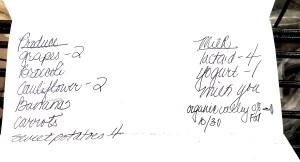 Produce
grapes - 2
Brocoli
Cauliflower - 2
Banana
Carrots
sweet potatoes 4
Milk
lactaid - 4
yogurt - 1
much you
organic valley 0%
Fat
10/30